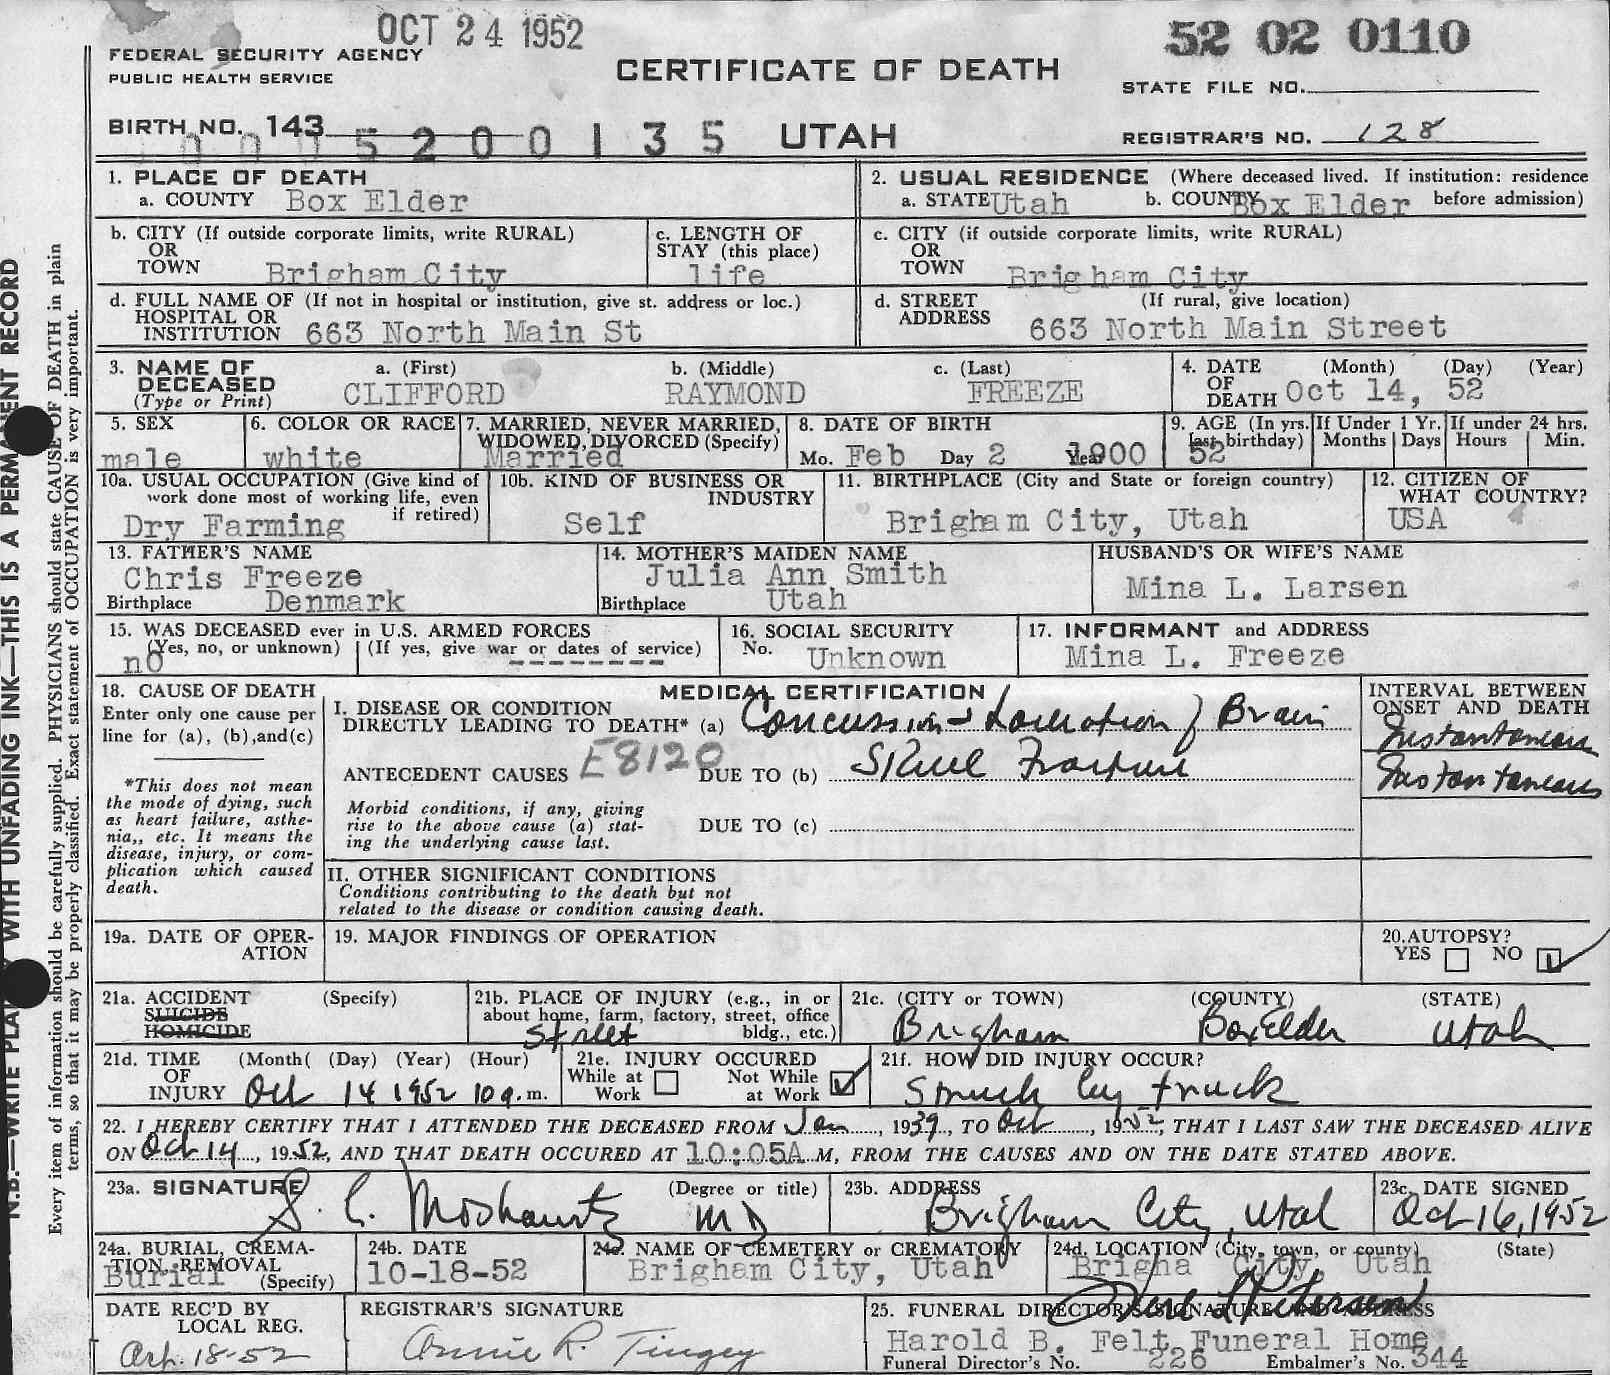 OCT 24 1952
52 02 0110
FEDERAL SECURITY AGENCY
PUBLIC HEALTH SERVICE
CERTIFICATE OF DEATH
STATE FILE NO.
BIRTH NO. 143
5200135
UTAH
REGISTRAR'S NO. 128
N.B.—WRITE PLAINLY WITH UNFADING INK—THIS IS A PERMANENT RECORD
Every item of information should be carefully supplied. PHYSICIANS should state CAUSE OF DEATH in plain
terms, so that it may be properly classified. Exact statement of OCCUPATION is very important.
1. PLACE OF DEATH
a. COUNTY Box Elder
2. USUAL RESIDENCE (Where deceased lived. If institution: residence
a. STATE Utah b. COUNTY Box Elder before admission)
b. CITY (If outside corporate limits, write RURAL)
OR
TOWN Brigham City
c. LENGTH OF
STAY (this place)
life
c. CITY (if outside corporate limits, write RURAL)
OR
TOWN Brigham City
d. FULL NAME OF (If not in hospital or institution, give st. address or loc.)
HOSPITAL OR
INSTITUTION 663 North Main St
d. STREET (If rural, give location)
ADDRESS 663 North Main Street
3. NAME OF
DECEASED
(Type or Print)
a. (First)
CLIFFORD
b. (Middle)
RAYMOND
c. (Last)
FREEZE
4. DATE (Month) (Day) (Year)
OF
DEATH Oct 14, 52
5. SEX
male
6. COLOR OR RACE
white
7. MARRIED, NEVER MARRIED,
WIDOWED, DIVORCED (Specify)
Married
8. DATE OF BIRTH
Mo. Feb Day 2 Year 1900
9. AGE (In yrs.
last birthday)
52
If Under 1 Yr.
Months Days
If under 24 hrs.
Hours Min.
10a. USUAL OCCUPATION (Give kind of
work done most of working life, even
if retired)
Dry Farming
10b. KIND OF BUSINESS OR
INDUSTRY
Self
11. BIRTHPLACE (City and State or foreign country)
Brigham City, Utah
12. CITIZEN OF
WHAT COUNTRY?
USA
13. FATHER'S NAME
Chris Freeze
Birthplace Denmark
14. MOTHER'S MAIDEN NAME
Julia Ann Smith
Birthplace Utah
HUSBAND'S OR WIFE'S NAME
Mina L. Larsen
15. WAS DECEASED ever in U.S. ARMED FORCES
(Yes, no, or unknown) (If yes, give war or dates of service)
no --------
16. SOCIAL SECURITY
No. Unknown
17. INFORMANT and ADDRESS
Mina L. Freeze
18. CAUSE OF DEATH
Enter only one cause per
line for (a), (b),and(c)
*This does not mean
the mode of dying, such
as heart failure, asthe-
nia,, etc. It means the
disease, injury, or com-
plication which caused
death.
MEDICAL CERTIFICATION
I. DISEASE OR CONDITION
DIRECTLY LEADING TO DEATH* (a) Concussion & Laceration of Brain
ANTECEDENT CAUSES E8120 DUE TO (b) Skull Fracture
Morbid conditions, if any, giving
rise to the above cause (a) stat-
ing the underlying cause last.
DUE TO (c)
INTERVAL BETWEEN
ONSET AND DEATH
Instantaneous
Instantaneous
II. OTHER SIGNIFICANT CONDITIONS
Conditions contributing to the death but not
related to the disease or condition causing death.
19a. DATE OF OPER-
ATION
19. MAJOR FINDINGS OF OPERATION
20. AUTOPSY?
YES NO
21a. ACCIDENT (Specify)
SUICIDE
HOMICIDE
21b. PLACE OF INJURY (e.g., in or
about home, farm, factory, street, office
bldg., etc.)
Street
21c. (CITY or TOWN) (COUNTY) (STATE)
Brigham Box Elder Utah
21d. TIME (Month( (Day) (Year) (Hour)
OF
INJURY Oct 14 1952 10 a.m.
21e. INJURY OCCURED
While at Work
Not While at Work
21f. HOW DID INJURY OCCUR?
Struck by truck
22. I HEREBY CERTIFY THAT I ATTENDED THE DECEASED FROM Jan, 1939, TO Oct, 1952, THAT I LAST SAW THE DECEASED ALIVE
ON Oct 14, 1952, AND THAT DEATH OCCURED AT 10:05A M, FROM THE CAUSES AND ON THE DATE STATED ABOVE.
23a. SIGNATURE (Degree or title)
MD
23b. ADDRESS
Brigham City, Utah
23c. DATE SIGNED
Oct 16, 1952
24a. BURIAL, CREMA-
TION, REMOVAL
(Specify)
Burial
24b. DATE
10-18-52
24c. NAME OF CEMETERY or CREMATORY
Brigham City, Utah
24d. LOCATION (City, town, or county) (State)
Brigha City, Utah
DATE REC'D BY
LOCAL REG.
18-52
REGISTRAR'S SIGNATURE
Annie R. Tingey
25. FUNERAL DIRECTOR'S SIGNATURE AND ADDRESS
Harold B. Felt Funeral Home
Funeral Director's No. 226 Embalmer's No. 344